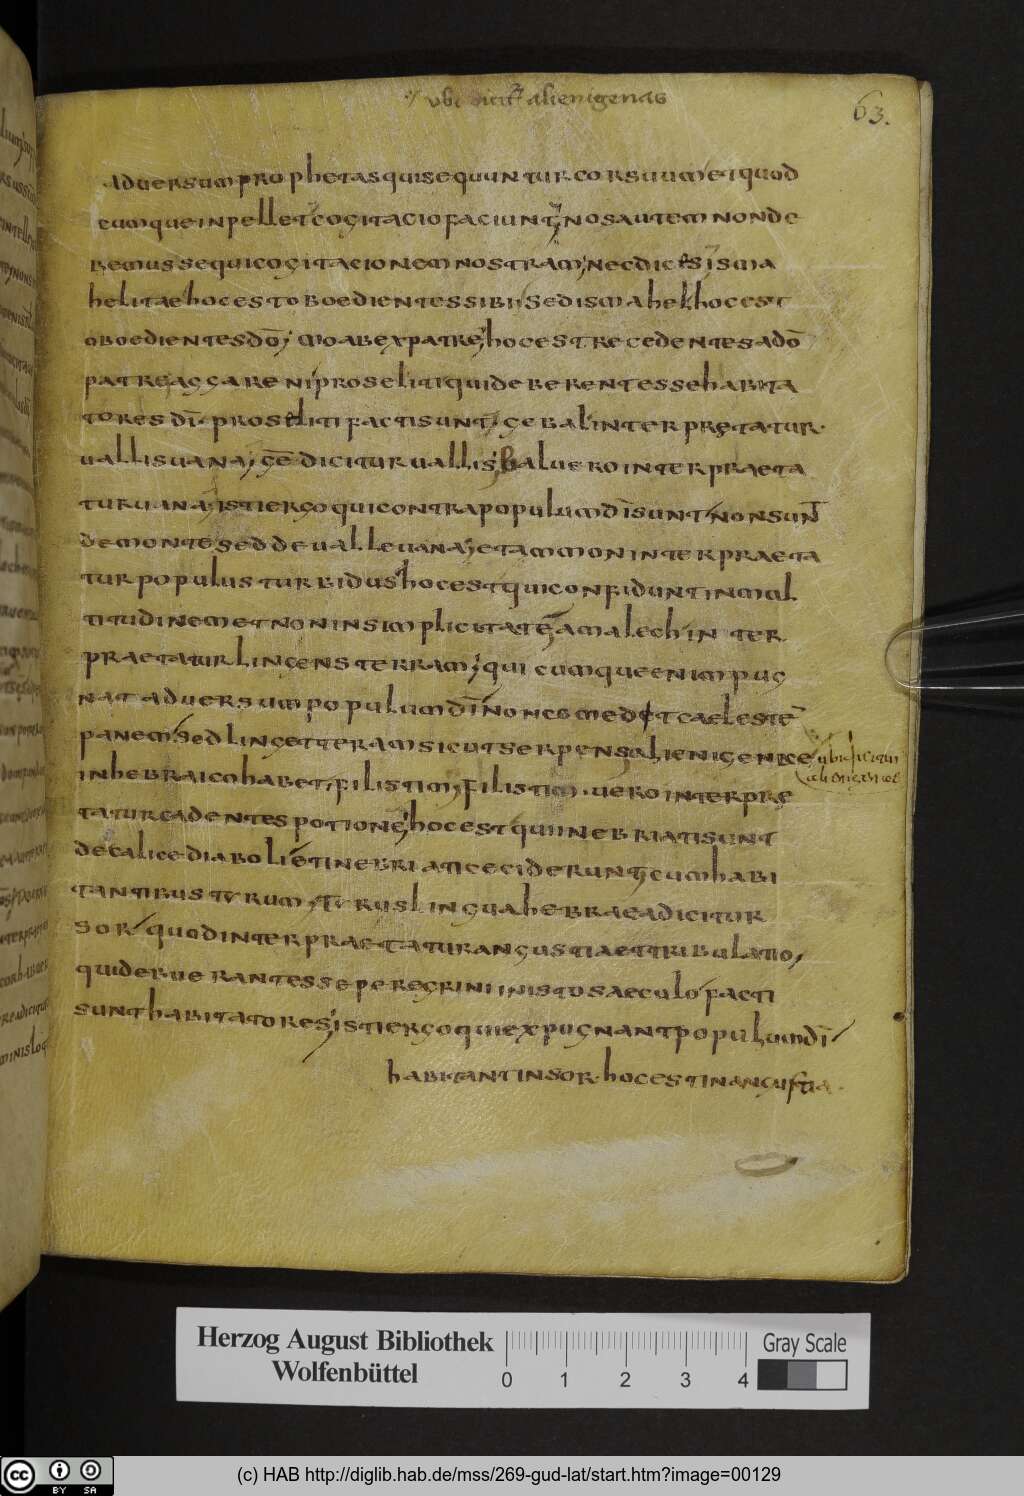 ubi dicit alienigenas
63.
aduersum prophetas qui sequuntur cor suum et quod
cumque inpellet cogitacio faciunt; nos autem non de
bemus sequi cogitacionem nostram; nec dic sisma
helitae hoc est oboedientes sibi sed ismahel hoc est
oboedientes dō; moab ex patre; hoc est recedentes a dō
patre; aggareni proseliti qui deberent esse habita
tores dī proseliti facti sunt; gebal interpretatur
uallis uana; gē dicitur uallis; Bal uero interpraeta
tur uana; isti ergo qui contra populum dī sunt non sunt
de monte sed de ualle uana; et ammon interpraeta
tur populus turbidus hoc est qui confidunt in mul
titudinem et non in simplicitate; amalech inter
praetatur lingens terram; quicumque enim pug
nat aduersum populum dī non comedet caeleste
panem; sed linget terram sicut serpens; alienigenae
ubi dicitur
alienigenae
in hebraico habet filistim; filistim uero interpre
tatur cadentes potione; hoc est qui inebriati sunt
de calice diaboli et inebriati ceciderunt; cum habi
tantibus tyrum; tyrus lingua hebraea dicitur
sor quod interpraetatur angustia et tribulatio;
qui deberant esse peregrini in isto saeculo facti
sunt habitatores; isti ergo qui expugnant populum dī
habitant in sor hoc est in angustia.
Herzog August Bibliothek
Wolfenbüttel
0 1 2 3 4
Gray Scale
cc BY SA
(c) HAB http://diglib.hab.de/mss/269-gud-lat/start.htm?image=00129